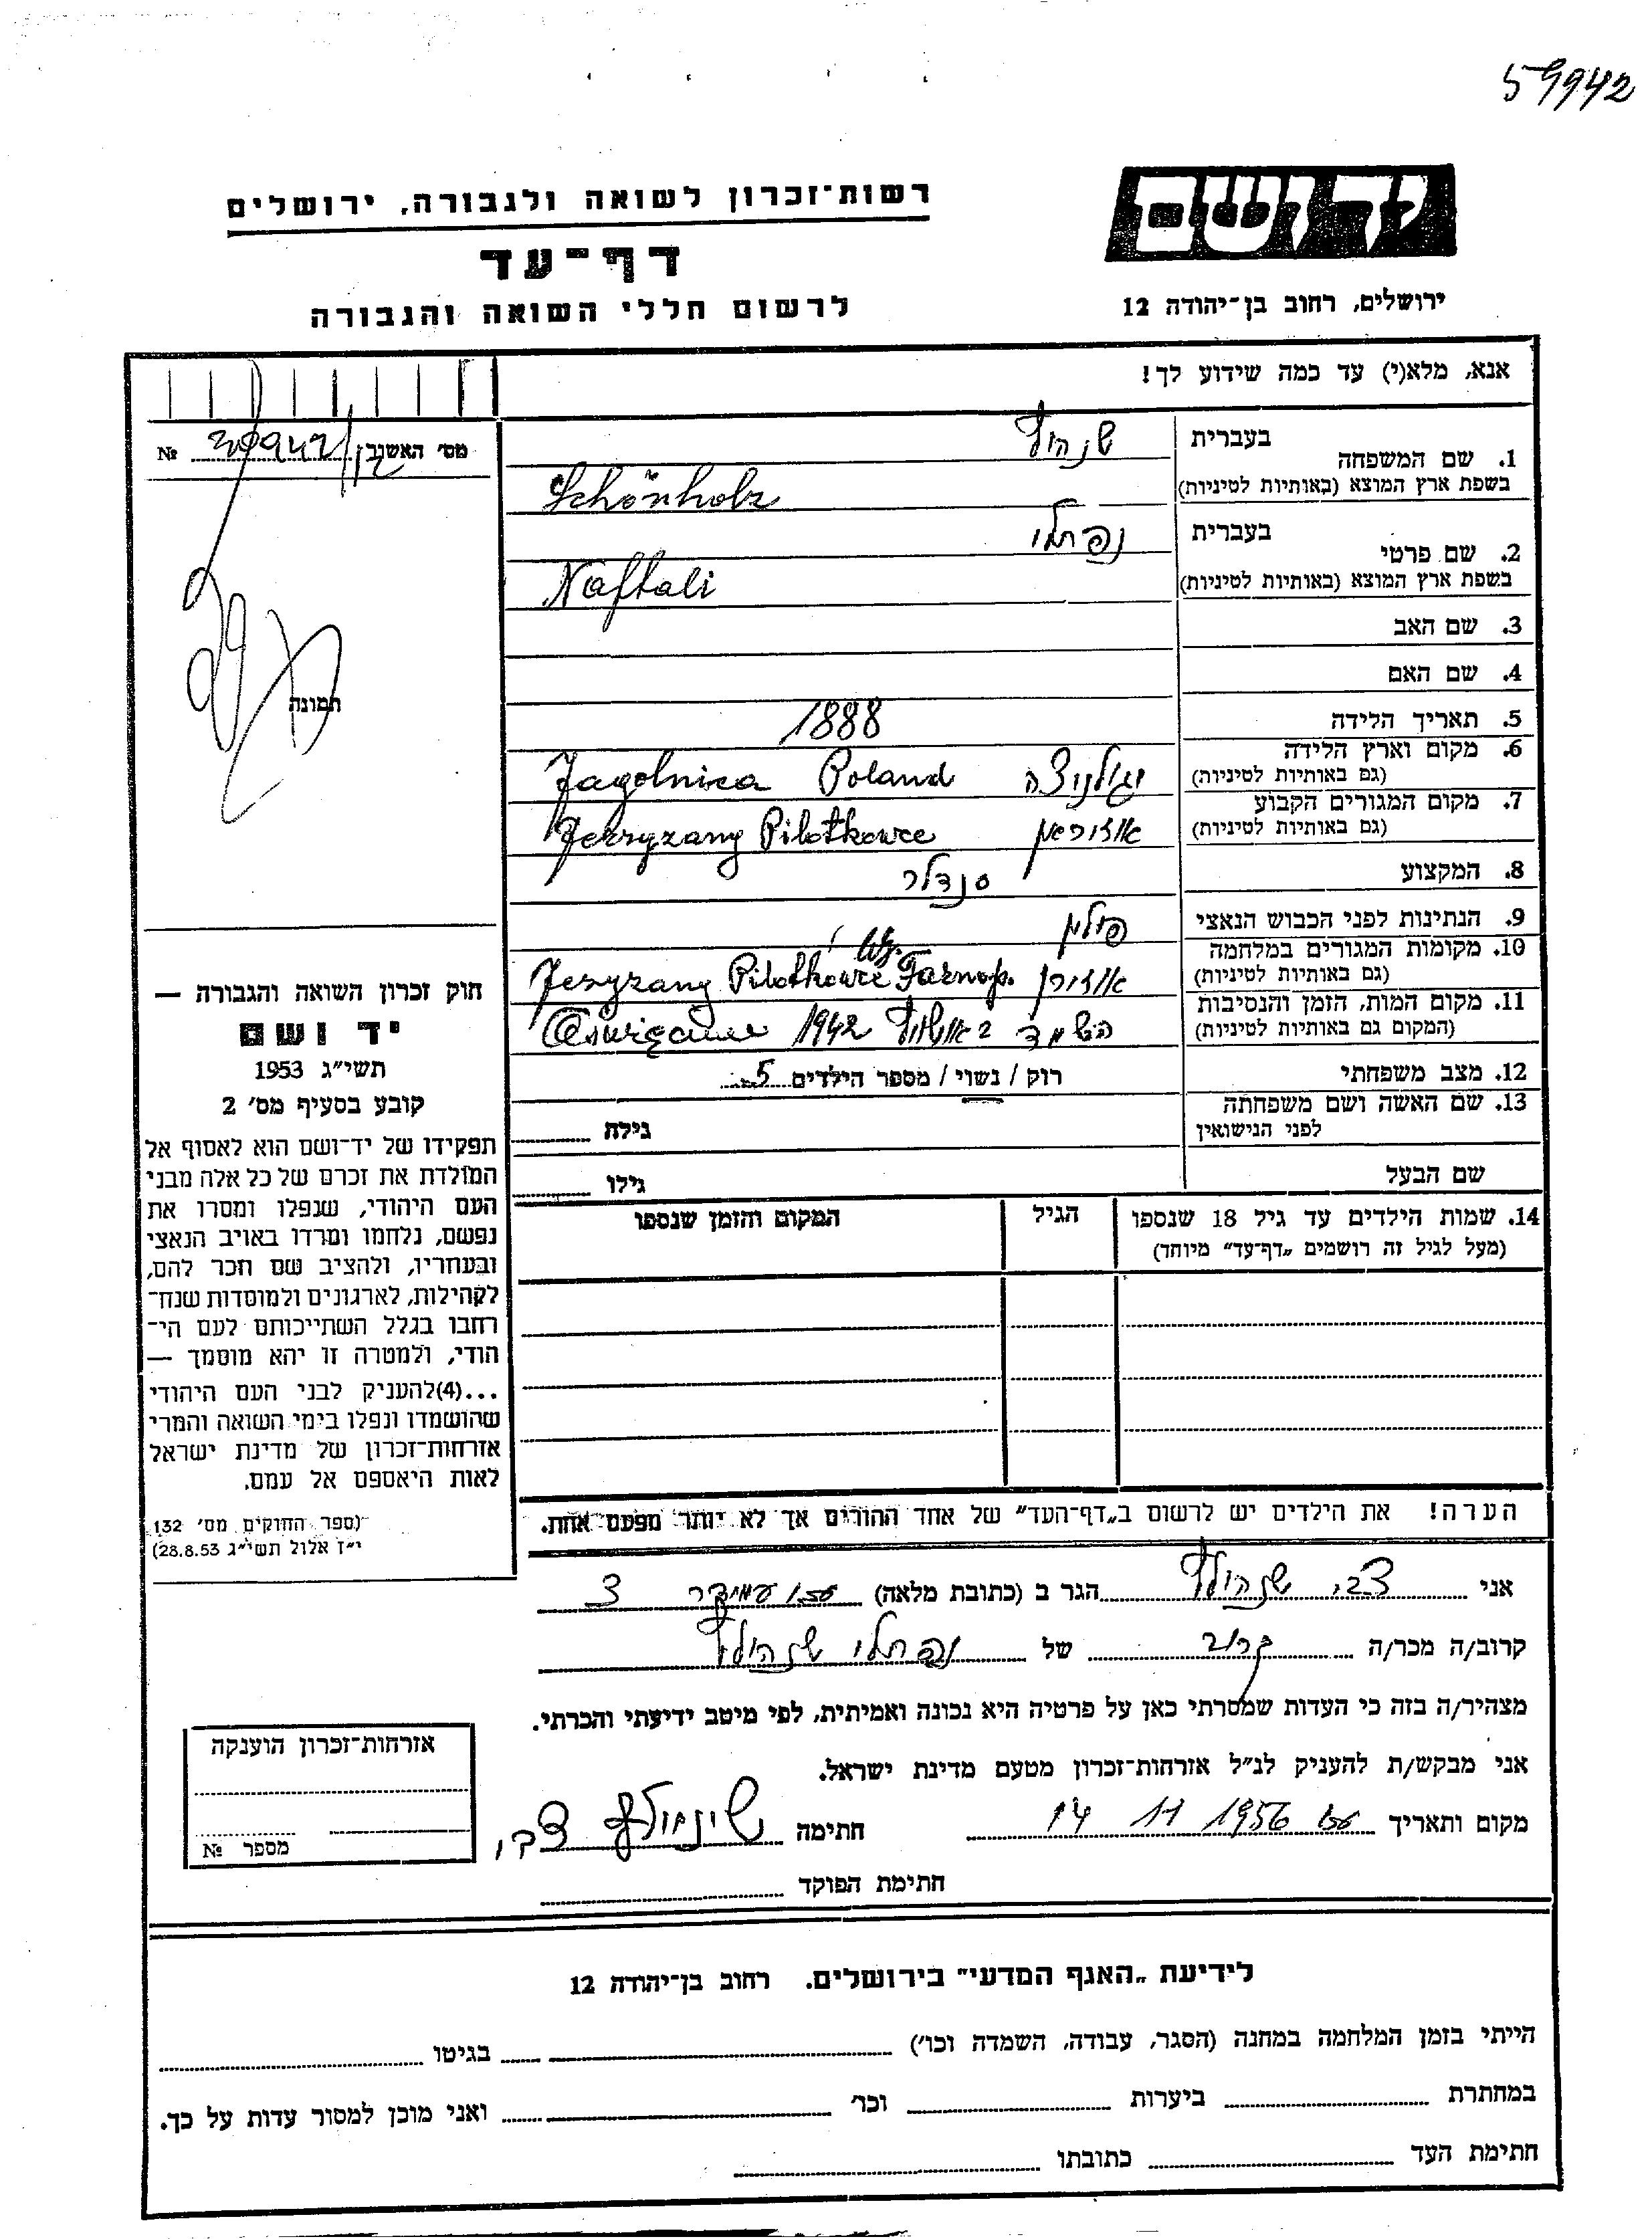 59942
יד ושם
רשות־זכרון לשואה ולגבורה, ירושלים
דף־עד
לרשום חללי השואה והגבורה
ירושלים, רחוב בן־יהודה 12
אנא, מלא(י) עד כמה שידוע לך!
מס׳ האשנב № 
בעברית
1. שם המשפחה
בשפת ארץ המוצא (באותיות לטיניות)
Schönholz
בעברית נפתלי
2. שם פרטי
בשפת ארץ המוצא (באותיות לטיניות)
Naftali
3. שם האב
4. שם האם
תמונה
5. תאריך הלידה 1888
6. מקום וארץ הלידה
(גם באותיות לטיניות)
יגולניצה Jagolnica Poland
7. מקום המגורים הקבוע
(גם באותיות לטיניות)
Pilatkowce
8. המקצוע סנדלר
9. הנתינות לפני הכבוש הנאצי פולין
10. מקומות המגורים במלחמה
(גם באותיות לטיניות)
Tarnop.
11. מקום המות, הזמן והנסיבות
(המקום גם באותיות לטיניות)
1942
12. מצב משפחתי רוק / נשוי / מספר הילדים 5
13. שם האשה ושם משפחתה
לפני הנישואין
גילה
שם הבעל גילו
14. שמות הילדים עד גיל 18 שנספו הגיל המקום והזמן שנספו
(מעל לגיל זה רושמים „דף־עד" מיוחד)
חוק זכרון השואה והגבורה —
יד ושם
תשי״ג 1953
קובע בסעיף מס׳ 2
תפקידו של יד־ושם הוא לאסוף אל
המולדת את זכרם של כל אלה מבני
העם היהודי, שנפלו ומסרו את
נפשם, נלחמו ומרדו באויב הנאצי
ובעוזריו, ולהציב שם וזכר להם,
לקהילות, לארגונים ולמוסדות שנח־
רחבו בגלל השתייכותם לעם הי־
הודי, ולמטרה זו יהא מוסמך —
...(4)להעניק לבני העם היהודי
שהושמדו ונפלו בימי השואה והמרי
אזרחות־זכרון של מדינת ישראל
לאות היאספם אל עמם.
(ספר החוקים מס׳ 132
י״ז אלול תשי״ג 28.8.53)
הערה! את הילדים יש לרשום ב„דף־העד" של אחד ההורים אך לא יותר מפעם אחת.
אני צבי שנהולץ הגר ב (כתובת מלאה) עמידר 3
קרוב/ה מכר/ה קרוב של נפתלי שנהולץ
מצהיר/ה בזה כי העדות שמסרתי כאן על פרטיה היא נכונה ואמיתית, לפי מיטב ידיעתי והכרתי.
אני מבקש/ת להעניק לנ״ל אזרחות־זכרון מטעם מדינת ישראל.
מקום ותאריך 14 11 1956 חתימה שינהולץ צבי
חתימת הפוקד
אזרחות־זכרון הוענקה
מספר №
לידיעת „האגף המדעי" בירושלים. רחוב בן־יהודה 12
הייתי בזמן המלחמה במחנה (הסגר, עבודה, השמדה וכו׳) בגיטו
במחתרת ביערות וכו׳ ואני מוכן למסור עדות על כך.
חתימת העד כתובתו